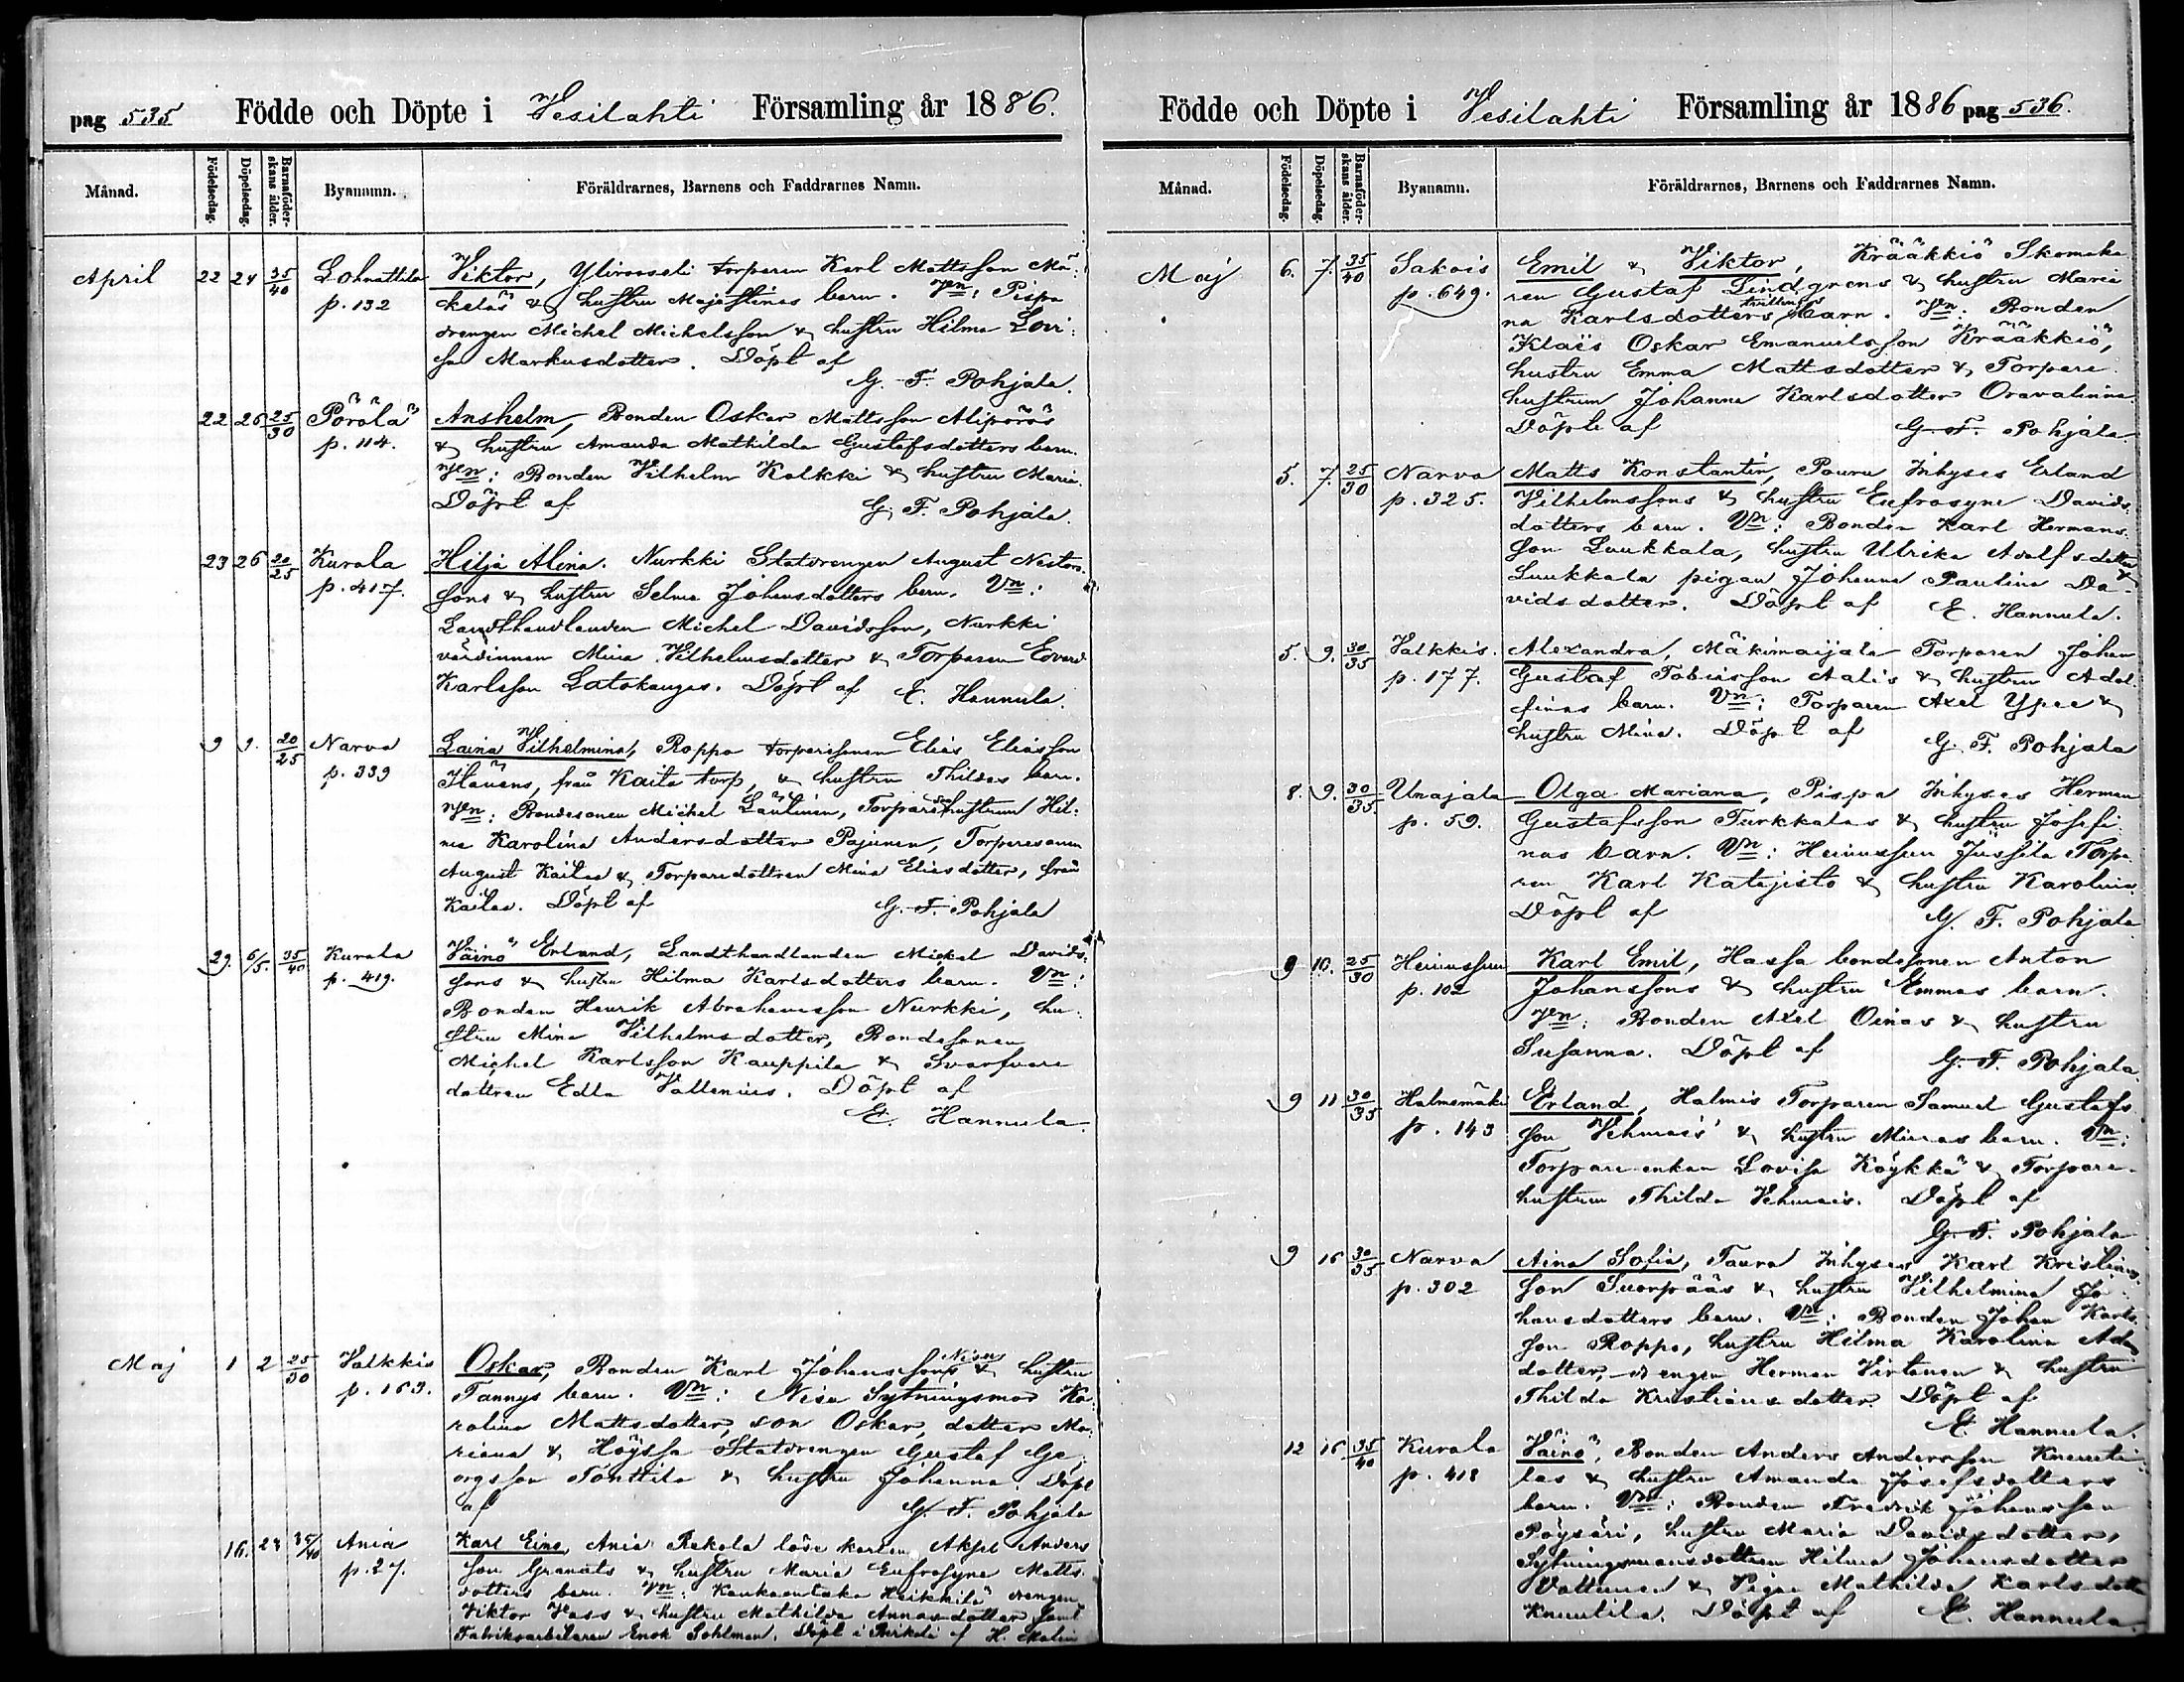 pag 535 Födde och Döpte i Vesilahti Församling år 1886.
Månad. Födelsedag. Döpelsedag. Barnaföderskans ålder. Byanamn. Föräldrarnes, Barnens och Faddrarnes Namn.
April 22 24 35/40 Lohnattila Viktor, Ylirooseli torparen Karl Mattsson Mä
p. 132 keläs & hustru Maja Stinas barn. Vn: Pispa
drengen Michel Michelsson & hustru Hilma Lovi
sa Markusdotter. Döpt af
G. F. Pohjala.
22 26 25/30 Pörölä Anshelm, Bonden Oskar Mattsson Alipörös
p. 114. & hustru Amanda Mathilda Gustafsdotters barn.
Vn: Bonden Vilhelm Kalkki & hustru Maria.
Döpt af G. F. Pohjala.
23 26 20/25 Kurala Hilja Alina. Nurkki Statdrengen August Nestors
p. 417. sons & hustru Selma Johansdotters barn. Vn:
Landthandlanden Michel Davidsson, Nurkki
värdinnan Mina Vilhelmsdotter & Torparen Edvard
Karlsson Latokangas. Döpt af E. Hannula.
9 9. 20/25 Narva Laina Vilhelmina, Roppo torparesonen Elias Eliasson
p. 339 från Kaita torp, & hustru Thildas barn.
Vn: Bondesonen Michel Torparehustrun Hil:
ma Karolina Andersdotter Pajunen, Torparesonen
August Kaitas & Torparedottren Mina Eliasdotter, från
Kaitas. Döpt af G. F. Pohjala
29. 6/5. 35/40 Kurala Väinö Erland, Landthandlanden Michel Davids
p. 419. sons & hustru Hilma Karlsdotters barn. Vn:
Bonden Henrik Abrahamsson Nurkki, hu
stru Mina Vilhelmsdotter, Bondesonen
Michel Karlsson Kauppila & Svarfvare
dottren Edla Vallenius. Döpt af
E. Hannula.
Maj 1 2 25/30 Valkkis Oskar, Bonden Karl Johansson Nisu & hustru
p. 163. Fannys barn. Vn: Nisu Sytningsmor Ka
rolina Mattsdotter, son Oskar, dotter Ma
riana & Höyssä Statdrengen Gustaf Ge
orgsson Tonttila & hustru Johanna. Döpt
af G. F. Pohjala
16. 23 35/40 Ania Karl Eino, Ania Rekola löse karlen Aksel Anders
p. 27. son Granats & hustru Maria Eufrosyne Matts
dotters barn. Vn: Kaukaentaka Heikkilä drengen
Viktor Vass & hustru Mathilda Annasdotter samt
Fabriksarbetaren Enok Sohlman. Döpt i Birkala af H. Malin
Födde och Döpte i Vesilahti Församling år 1886 pag 536.
Månad. Födelsedag. Döpelsedag. Barnaföderskans ålder. Byanamn. Föräldrarnes, Barnens och Faddrarnes Namn.
Maj 6. 7. 35/40 Sakois Emil & Viktor, Krääkkiö Skomaka
p. 649. ren Gustaf Lindgrens & hustru Maria
na Karlsdotters tvillings barn. Vn: Bonden
Klaës Oskar Emanuelsson Krääkkiö,
hustru Emma Mattsdotter & Torpare
hustrun Johanna Karlsdotter Oravalinna
Döpte af G. F. Pohjala
5. 7. 25/30 Narva Matts Konstantin, Pauru Inhyses Erland
p. 325. Vilhelmssons & hustru Eufrosyne Davids
dotters barn. Vn: Bonden Karl Hermans
son Luukkala, hustru Ulrika Adolfsdotter &
Luukkala pigan Johanna Paulina Da
vidsdotter. Döpt af E. Hannula.
5. 9. 30/35 Valkkis. Alexandra, Mäkimaijala Torparen Johan
p. 177. Gustaf Tobiasson Aalis & hustru Adol
finas barn. Vn: Torparen Axel Ypee &
hustru Mina. Döpt af
G. F. Pohjala
8. 9. 30/35. Unajala Olga Mariana, Pispa Inhyses Herman
p. 59. Gustafsson Turkkalas & hustru Josefi
nas barn. Vn: Heinussuu Jussila Torpa
ren Karl Katajisto & hustru Karolina.
Döpt af G. F. Pohjala
9 10. 25/30 Heinussuu Karl Emil, Hassa bondesonen Anton
p. 102 Johanssons & hustru Emmas barn.
Vn: Bonden Axel Oinas & hustru
Susanna. Döpt af G. F. Pohjala.
9 11 30/35 Halmemäki Erland, Halmis Torparen Samuel Gustafs
p. 143 son Vehmais & hustru Minas barn. Vn:
Torpare enkan Lovisa Köykkä & Torpare
hustrun Thilda Vehmais. Döpt af
G. F. Pohjala
9 16 30/35 Narva Aina Sofia, Taura Inhyses Karl Kristians
p. 302 son Suorpääs & hustru Vilhelmina Jo
hansdotters barn. Vn: Bonden Johan Karls
son Roppo, hustru Hilma Karolina Ad
dotter, drengen Herman Virtanen & hustru
Thilda Kristiansdotter Döpt af
E. Hannula.
12 16 35/40 Kurala Väinö, Bonden Anders Andersson Knuuti
p. 418 las & hustru Amanda Josefsdotters
barn. Vn: Bonden Fredrik Johansson
Pöysäri, hustru Maria Davidsdotter,
Sytningsmansdottren Hilma Johansdotter
Vattunen & Pigan Mathilda Karlsdotter
Knuutila. Döpt af E. Hannula.